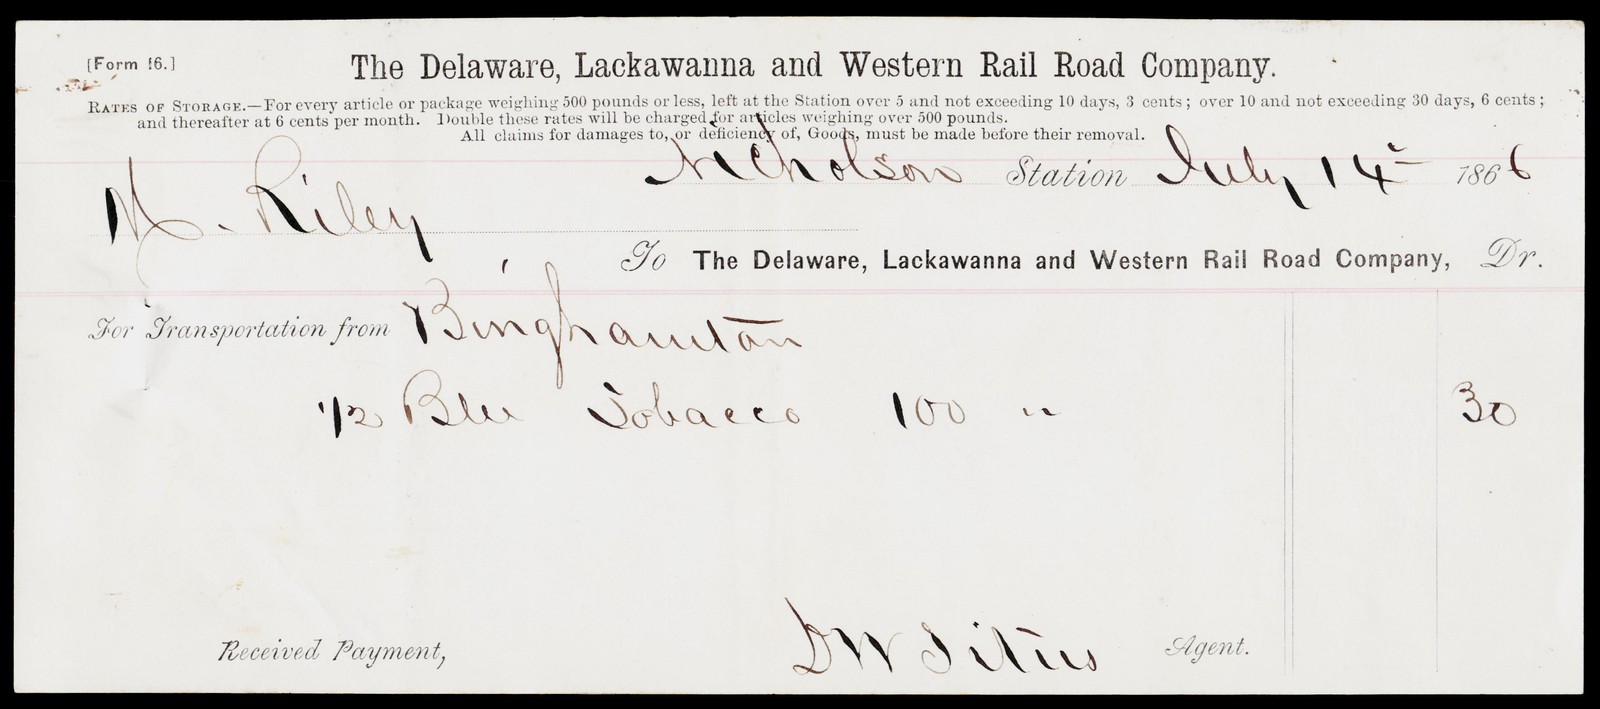 [Form 16.]
The Delaware, Lackawanna and Western Rail Road Company.
RATES OF STORAGE.—For every article or package weighing 500 pounds or less, left at the Station over 5 and not exceeding 10 days, 3 cents; over 10 and not exceeding 30 days, 6 cents;
and thereafter at 6 cents per month. Double these rates will be charged for articles weighing over 500 pounds.
All claims for damages to, or deficiency of, Goods, must be made before their removal.
Nicholson Station July 14 1866
M. Riley
To The Delaware, Lackawanna and Western Rail Road Company, Dr.
For Transportation from Binghamton
1/2 Tobacco 100 " 30
Received Payment, DW Titus Agent.